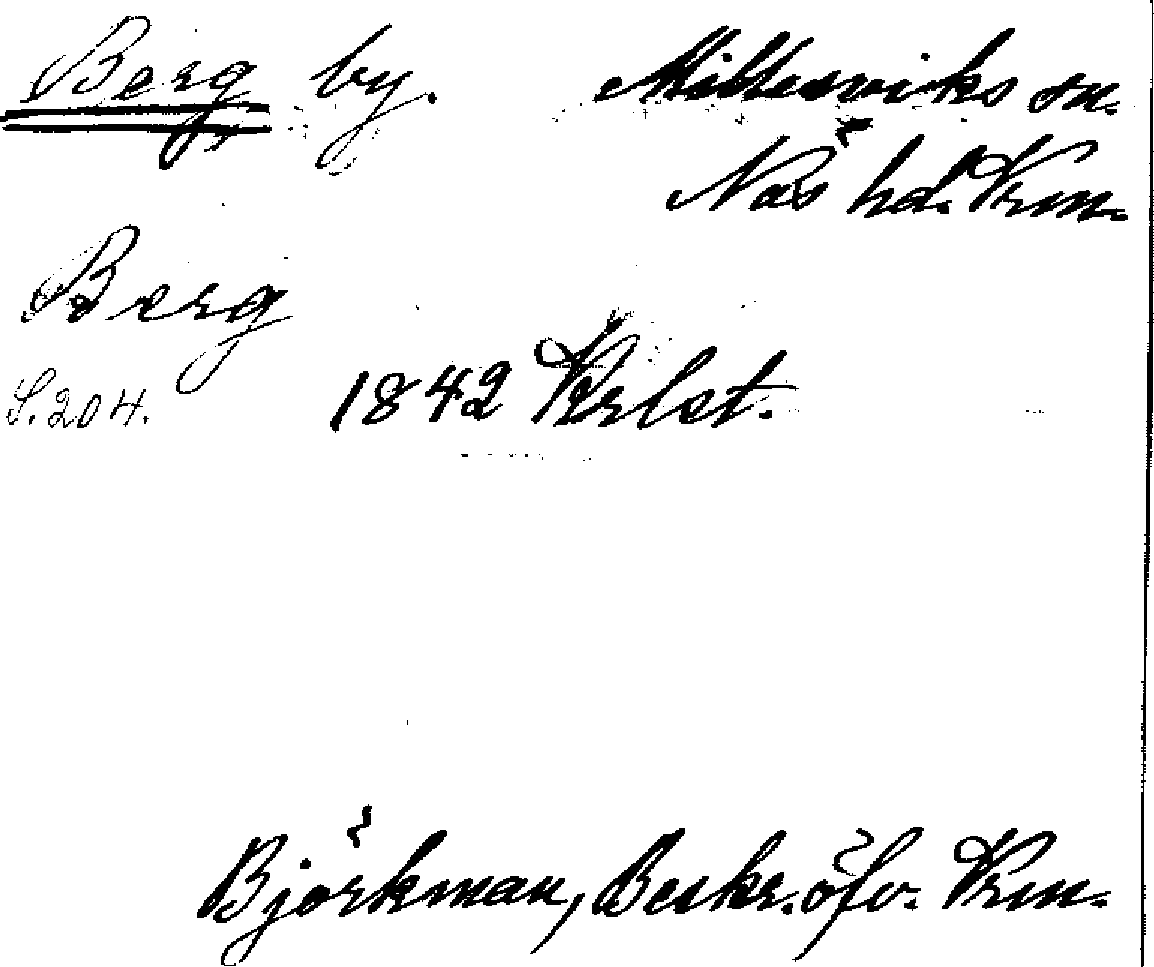 Berg by. Millesviks sn.
Näs hd. Vrm.
Berg
S. 204. 1842 Krlst.
Björkman, Beskr. öfv. Vrm.